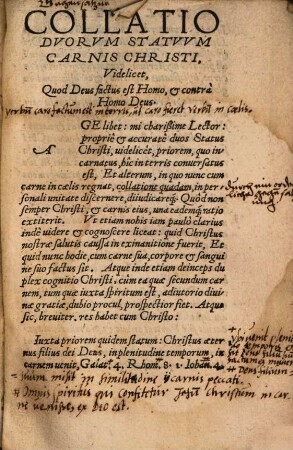 COLLATIO
DVORVM STATVVM
CARNIS CHRISTI,
Videlicet,
Quod Deus factus est Homo, & contrà
Homo Deus.
AGE libet: mi charißime Lector:
propriè & accuratè duos Status
Christi, uidelicet, priorem, quo in-
carnatus, hîc in terris conuersatus
est, Et alterum, in quo nunc cum
carne in cœlis regnat, collatione quadam, in per-
sonali unitate discernere, diiudicareq́;. Quòd non
semper Christi, & carnis eius, una eademq́; ratio
extiterit. Vt etiam nobis iam paulò clarius
inde uidere et cognoscere liceat: quid Christus
nostræ salutis caussa in exinanitione fuerit, Et
quid nunc hodie, cum carne sua, corpore & sangui
ne suo factus sit. Atque inde etiam deinceps du
plex cognitio Christi, cùm ea quæ secundum car
nem, tum quæ iuxta spiritum est, adiutorio diui
næ gratiæ, dubio procul, profectior fiet. Atqui
sic, breuiter, res habet cum Christo:
Iuxta priorem quidem statum: Christus æter
nus filius dei Deus, in plenitudine temporum, in
carnem uenit, Galat. 4. Rhom. 8. 1. Iohan. 4.
suum misit in similitudine carnis peccati.
Omnis spiritus qui confitetur Jesum Christum in car
ne venisse, ex Deo est.